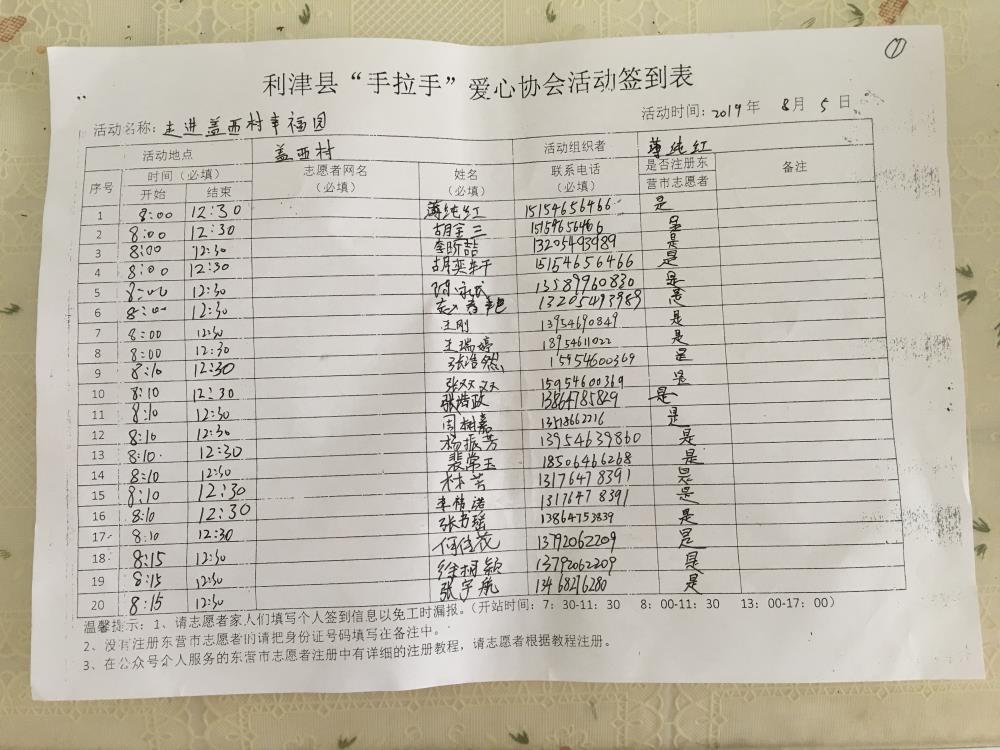 ①
利津县“手拉手”爱心协会活动签到表
活动名称：走进盖西村幸福园 活动时间：2019年 8月 5日
活动地点 盖西村 活动组织者 薄纯红
序号 时间（必填） 志愿者网名（必填） 姓名（必填） 联系电话（必填） 是否注册东营市志愿者 备注
开始 结束
1 8:00 12:30 薄纯红 15154656466 是
2 8:00 12:30 胡金三 15154656466 是
3 8:00 12:30 李昕喆 13205493989 是
4 8:00 12:30 胡奕午 15154656466 是
5 8:00 12:30 13589960830 是
6 8:00 12:30 13205493989 是
7 8:00 12:30 王刚 13954690849 是
8 8:00 12:30 王瑞婷 18954611022 是
9 8:10 12:30 张浩然 15954600369 是
10 8:10 12:30 张双双 15954600369 是
11 8:10 12:30 张浩政 13864785829 是
12 8:10 12:30 周树嘉 是
13 8:10 12:30 杨振芳 13954639860 是
14 8:10 12:30 裴常玉 18506466268 是
15 8:10 12:30 林芸 13176478391 是
16 8:10 12:30 13176478391 是
17 8:10 12:30 张书瑶 13864753839 是
18 8:15 12:30 何佳茂 13792062209 是
19 8:15 12:30 徐栩颖 13792062209 是
20 8:15 12:30 张宇航 13468216280 是
温馨提示：1、请志愿者家人们填写个人签到信息以免工时漏报。（开站时间：7：30-11：30 8：00-11：30 13：00-17：00）
2、没有注册东营市志愿者的请把身份证号码填写在备注中。
3、在公众号个人服务的东营市志愿者注册中有详细的注册教程，请志愿者根据教程注册。